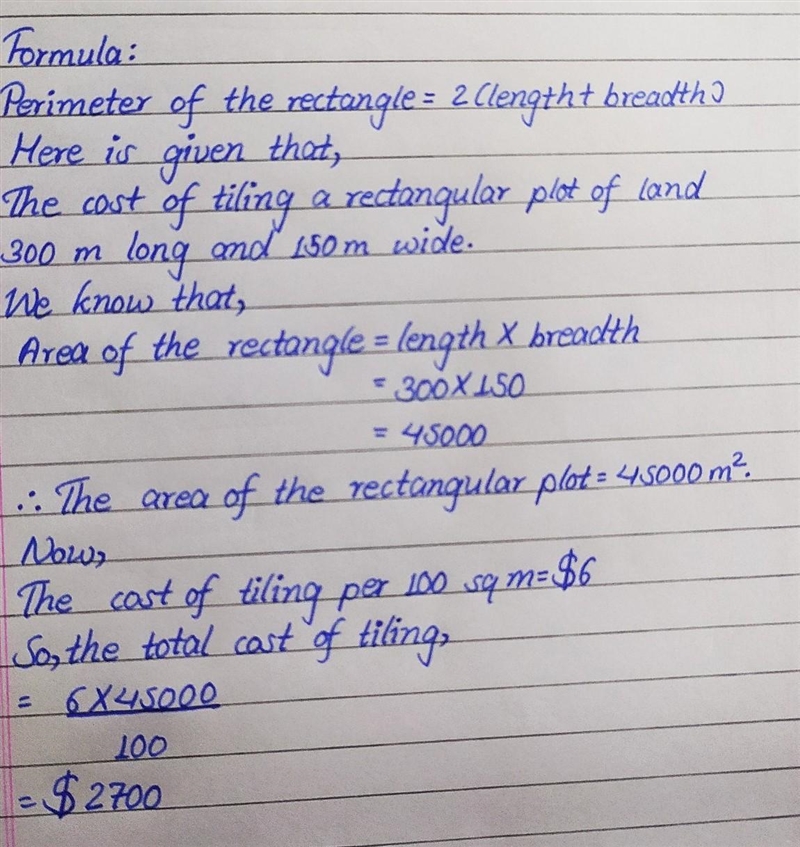 Formula:
Perimeter of the rectangle = 2(length + breadth)
Here is given that,
The cost of tiling a rectangular plot of land
300 m long and 150 m wide.
We know that,
Area of the rectangle = length × breadth
= 300 × 150
= 45000
∴ The area of the rectangular plot = 45000 m².
Now,
The cost of tiling per 100 sq m = $6
So, the total cost of tiling,
= 6 × 45000
100
= $ 2700